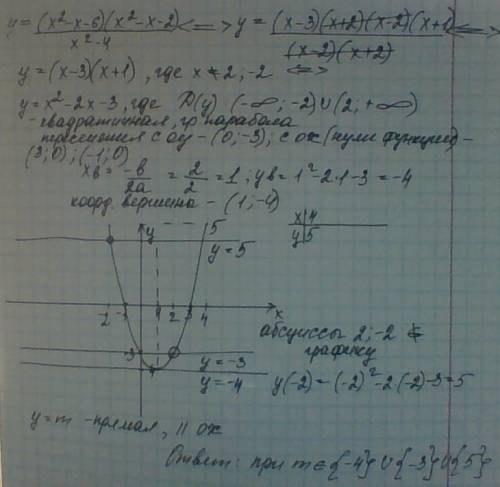 y = (x²-x-6)(x²-x-2) / x²-4 <=> y = (x-3)(x+2)(x-2)(x+1) / (x-2)(x+2) <=>
y = (x-3)(x+1), где x ≠ 2; -2 <=>
y = x²-2x-3, где D(y) (-∞; -2)∪(2; +∞)
- квадратичная, гр. парабола
пересечения с oy - (0; -3); с ox (нули функции) -
(3; 0); (-1; 0)
xв = -в/2a = 2/2 = 1; yв = 1²-2·1-3 = -4
коорд. вершины - (1; -4)
x 4
y 5
y 5
y = 5
-2 -1 1 2 3 4 x
абсциссы 2; -2 ∉
графику
-3 y = -3
y = -4
y(-2) = (-2)²-2(-2)-3 = 5
y = m - прямая, || ox
Ответ: при m ∈ {-4}∪{-3}∪{5}